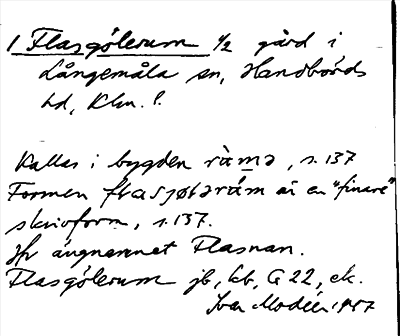 1 Flasgölerum 1/2 gård i
Långemåla sn, Handbörds
hd, Klm. l.
Kallas i bygden ràmə, s. 137
Formen flasjøləràm är en "finare"
skrivform, s. 137.
Jfr ängnamnet Flasnan.
Flasgölerum jb, kb, G 22, ek.
Ivar Modéer 1957